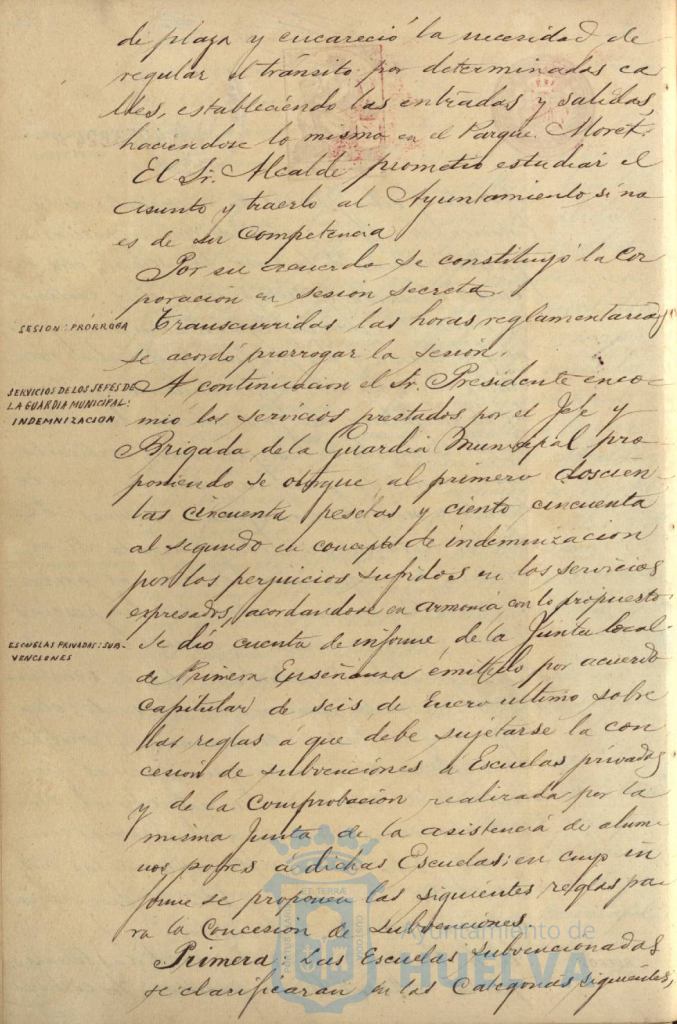 de plaza y encareció la necesidad de
regular el tránsito por determinadas ca
lles, estableciendo las entradas y salidas,
haciendose lo mismo en el Parque Moret.
El Sr. Alcalde prometió estudiar el
asunto y traerlo al Ayuntamiento si no
es de su competencia
Por su acuerdo se constituyó la Cor
poracion en sesión secreta.
SESION: PRÓRROGA
Transcurridas las horas reglamentarias
se acordó prorrogar la sesión.
SERVICIOS DE LOS JEFES DE
LA GUARDIA MUNICIPAL:
INDEMNIZACION
A continuacion el Sr. Presidente enco-
mió los servicios prestados por el Jefe y
Brigada de la Guardia Municipal pro-
poniendo se otorgue al primero doscien-
tas cincuenta pesetas y ciento cincuenta
al segundo en concepto de indemnizacion
por los perjuicios sufridos en los servicios
expresados, acordandose en armonia con lo propuesto.
ESCUELAS PRIVADAS: SUB-
VENCIONES
Se dió cuenta de informe de la Junta local
de Primera Enseñanza emitido por acuerdo
Capitular de seis de Enero ultimo sobre
las reglas á que debe sujetarse la con
cesión de subvenciones a Escuelas privadas
y de la Comprobación realizada por la
misma Junta de la asistencia de alum
nos pobres a dichas Escuelas; en cuyo in
forme se proponen las siguientes reglas pa
ra la Concesión de Subvenciones.
Primera: Las Escuelas subvencionadas
se clasificaran en las Categorias siguientes;
Ayuntamiento de
HUELVA